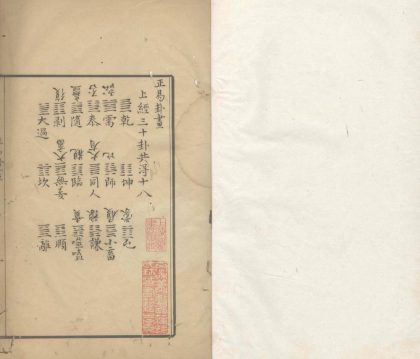 正易卦畫
上經三十卦共浮十八
乾 坤 蒙 屯
訟 需 比 師 履 小畜
否 泰 大有 同人 豫 謙
蠱 隨 觀 臨 賁 噬嗑
復 剝 大畜 无妄 頤
大過 坎 離